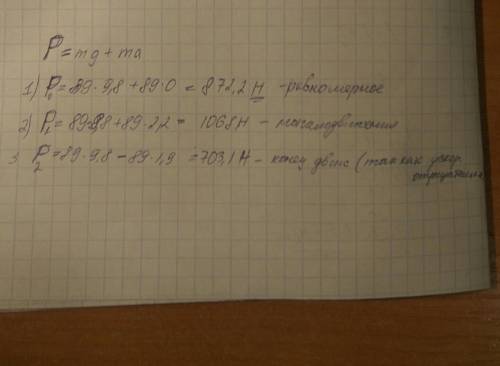 P = mg + ma
1) P₀ = 89·9,8 + 89·0 = 872,2 Н - равномерное
2) P₁ = 89·9,8 + 89·2,2 = 1068 Н -
3 P₂ = 89·9,8 - 89·1,9 = 703,1 Н - конец движ (так как ускор отрицательн